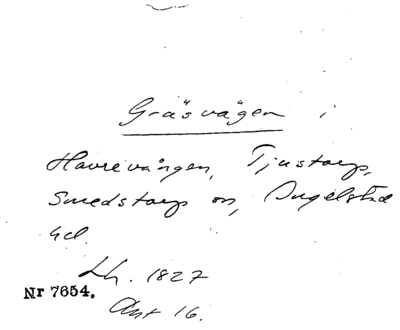 Gräsvågen i
Havrevången, Tjustorp,
Smedstorp sn, Ingelstad
hd.
Lh. 1827
Nr 7654.
Akt 16.